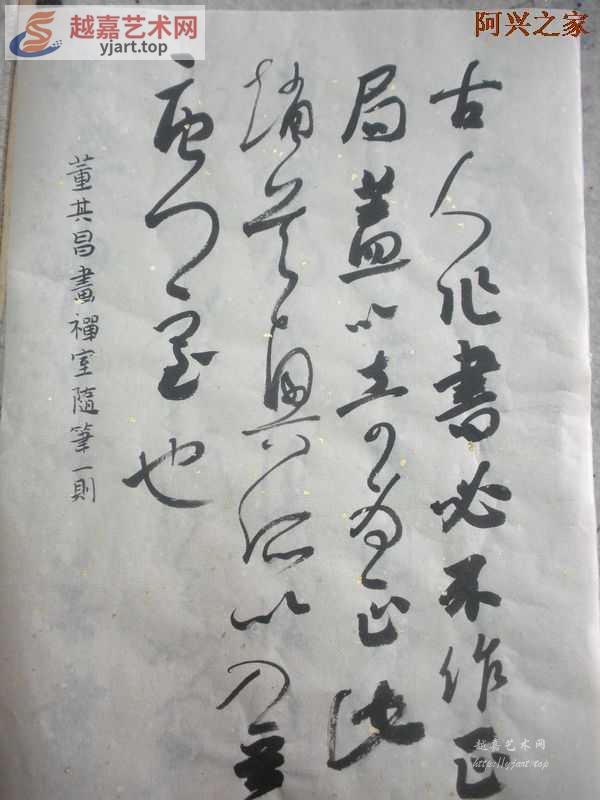 越嘉艺术网
yjart.top
阿兴之家
古人作書必不作正
局蓋以奇為正此
趙吳興所以不入晉
唐門室也
董其昌畫禪室隨筆一則
越嘉艺术网
http://yjart.top